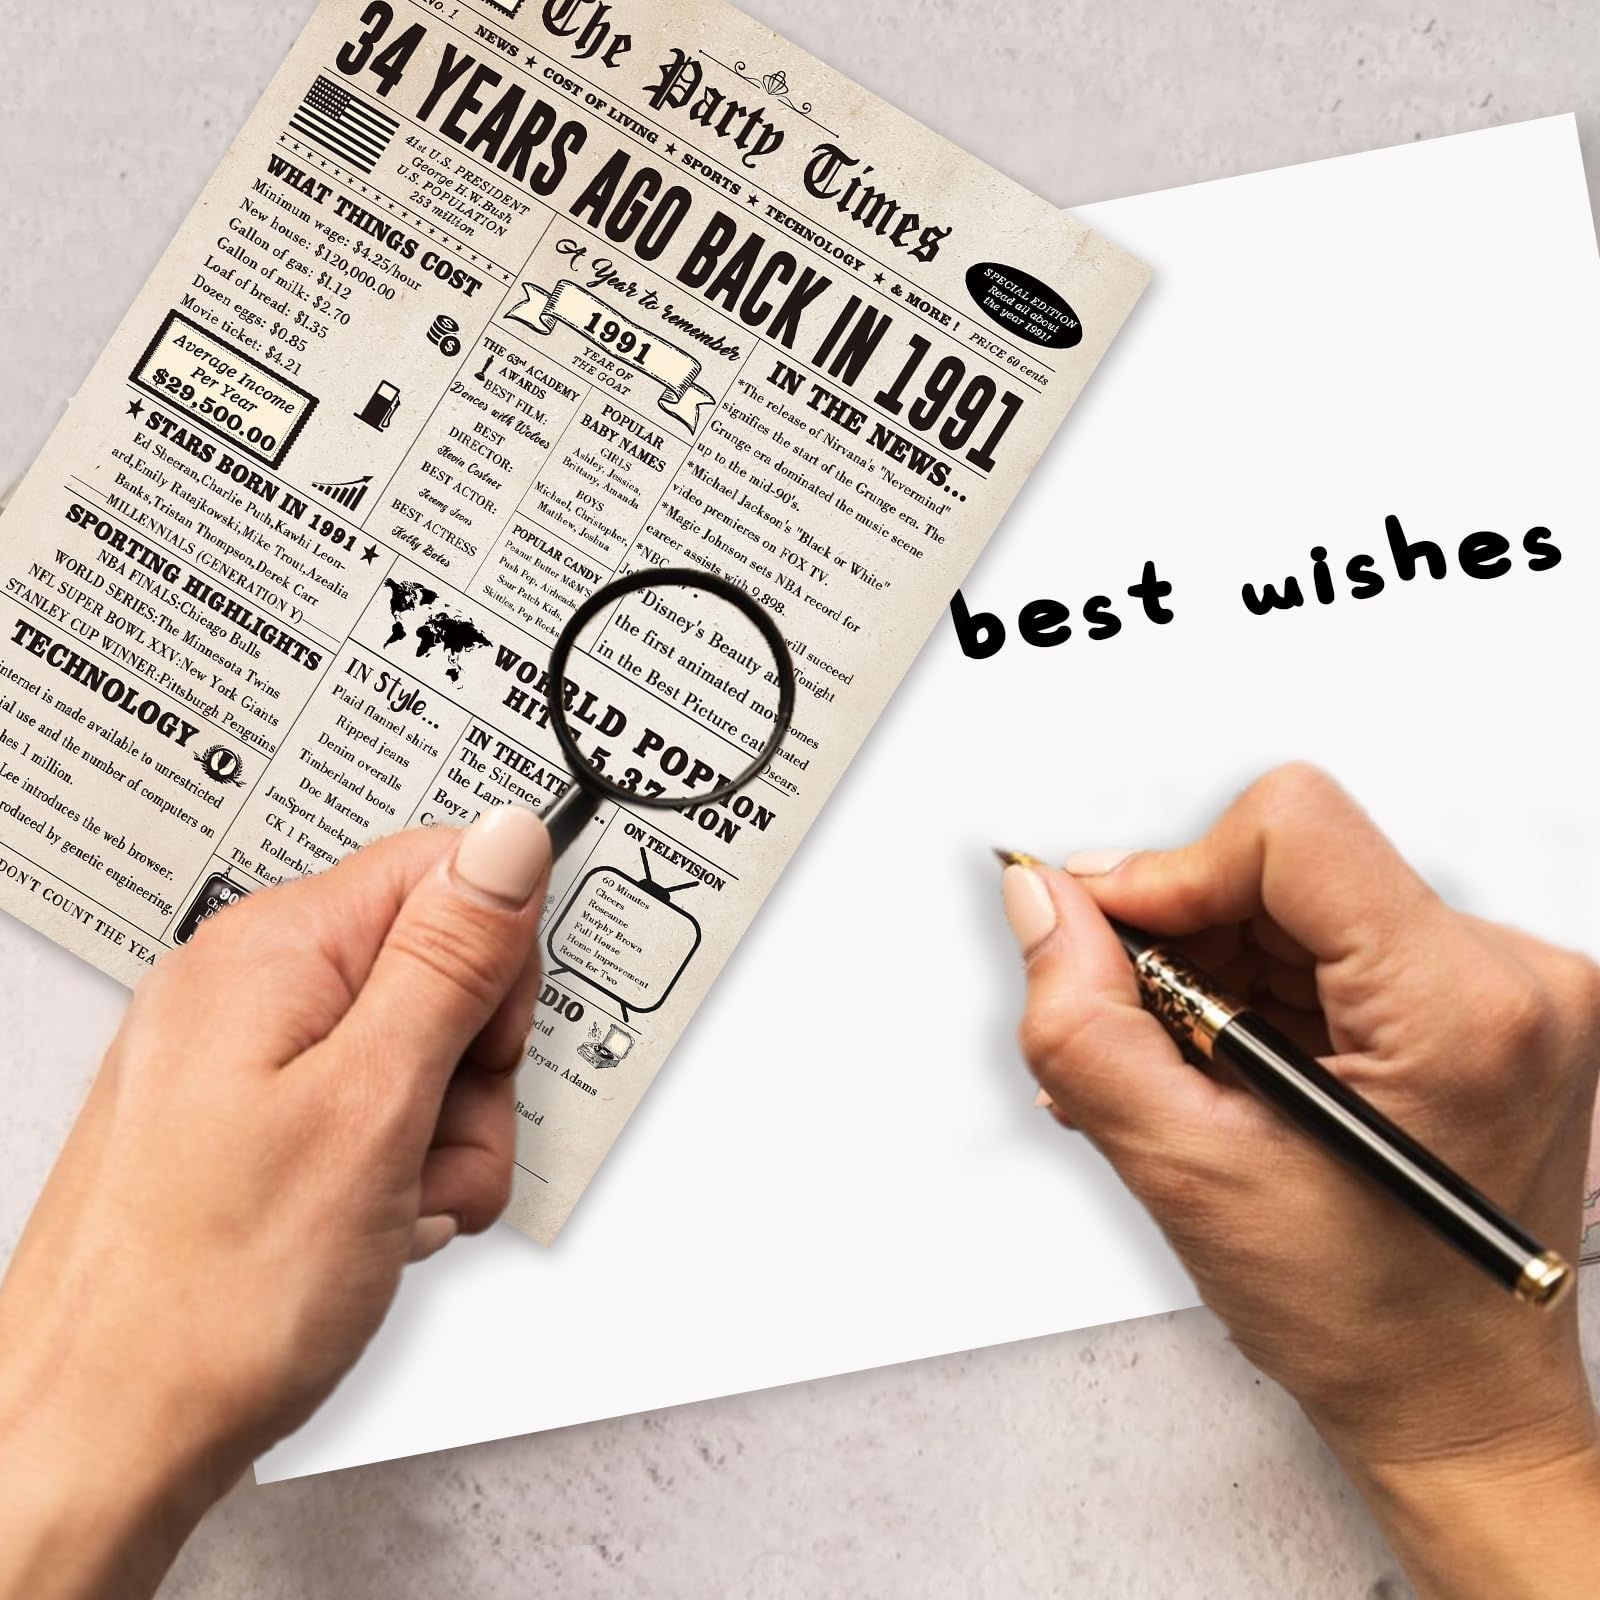 The Party Times
No. 1
NEWS ★ COST OF LIVING ★ SPORTS ★ TECHNOLOGY ★ & MORE!
PRICE 60 cents
34 YEARS AGO BACK IN 1991
SPECIAL EDITION
Read all about
the year 1991!
41st U.S. PRESIDENT
George H.W.Bush
U.S. POPULATION
253 million
WHAT THINGS COST
Minimum wage: $4.25/hour
New house: $120,000.00
Gallon of gas: $1.12
Gallon of milk: $2.70
Loaf of bread: $1.35
Dozen eggs: $0.85
Movie ticket: $4.21
Average Income
Per Year
$29,500.00
★ STARS BORN IN 1991 ★
Ed Sheeran,Charlie Puth,Kawhi Leon-
ard,Emily Ratajkowski,Mike Trout,Azealia
Banks,Tristan Thompson,Derek Carr
MILLENNIALS (GENERATION Y)
SPORTING HIGHLIGHTS
NBA FINALS:Chicago Bulls
WORLD SERIES:The Minnesota Twins
NFL SUPER BOWL XXV:New York Giants
STANLEY CUP WINNER:Pittsburgh Penguins
TECHNOLOGY
internet is made available to unrestricted
use and the number of computers on
1 million.
Lee introduces the web browser.
produced by genetic engineering.
DON'T COUNT THE
A Year to remember
1991
YEAR OF
THE GOAT
THE 63rd ACADEMY
AWARDS
BEST FILM:
Dances with Wolves
BEST
DIRECTOR:
Kevin Costner
BEST ACTOR:
Jeremy Irons
BEST ACTRESS
Kathy Bates
POPULAR
BABY NAMES
GIRLS
Ashley, Jessica,
Brittany, Amanda
BOYS
Michael, Christopher,
Matthew, Joshua
POPULAR CANDY
Peanut Butter M&M'S
Push Pop, Airheads,
Sour Patch Kids,
Skittles, Pop Rocks
IN THE NEWS...
*The release of Nirvana's "Nevermind"
signifies the start of the Grunge era. The
Grunge era dominated the music scene
up to the mid-90's.
*Michael Jackson's "Black or White"
video premieres on FOX TV.
*Magic Johnson sets NBA record for
career assists with 9,898.
*NBC
will succeed
Tonight
*Disney's Beauty
the first animated
in the Best Picture
Oscars.
WORLD
HIT 5.37
IN Style...
Plaid flannel shirts
Ripped jeans
Denim overalls
Timberland boots
Doc Martens
JanSport
CK 1
The
IN
The Silence
the
Boyz
ON TELEVISION
60 Minutes
Cheers
Roseanne
Murphy Brown
Full House
Home Improvement
Room for Two
Bryan Adams
Badd
best wishes